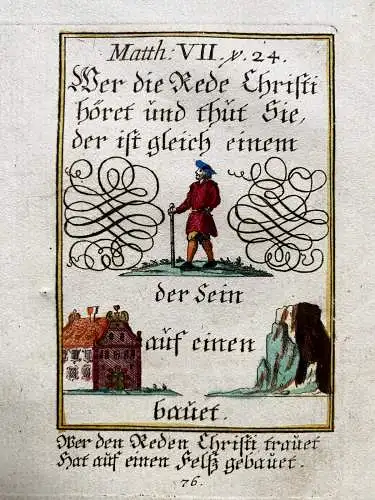 Matth: VII. v. 24.
Wer die Rede Chriſti
höret und thüt Sie,
der iſt gleich einem
der Sein
aüf einen
baüet.
Wer den Reden Chriſti traüet
Hat aüf einen Felſz gebaüet.
76.